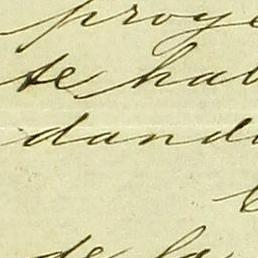 proye
te hab
dand
de la